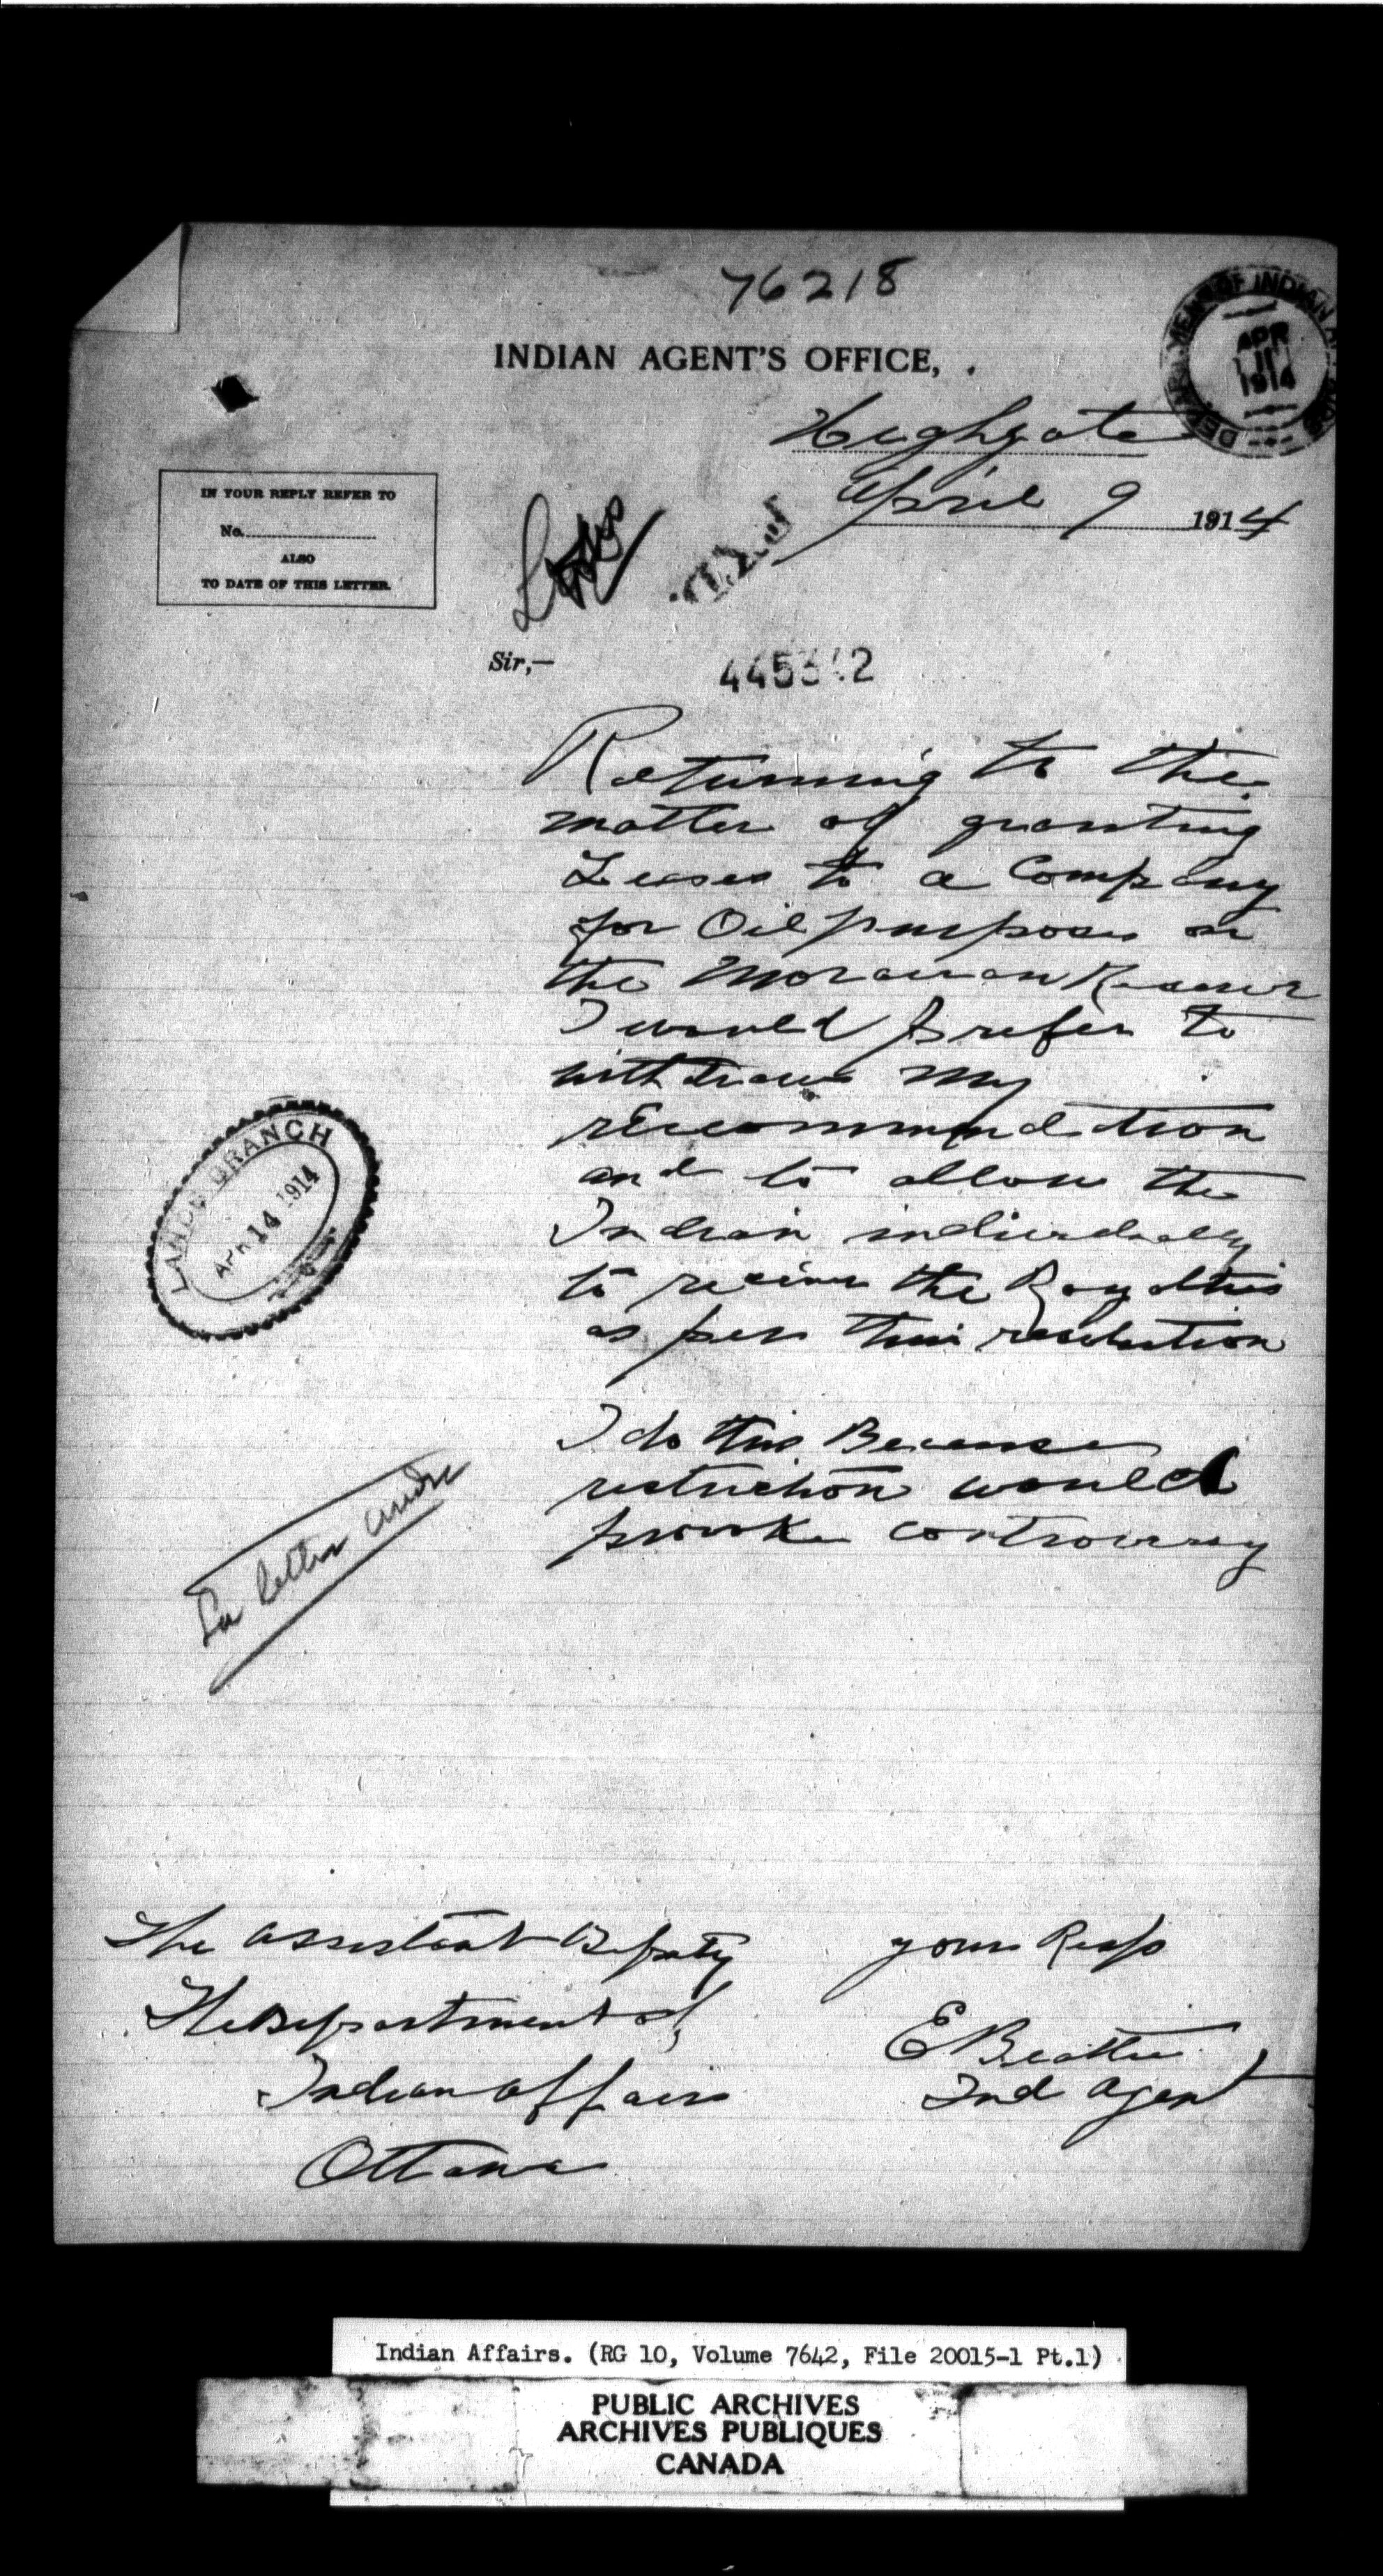 76218
INDIAN AGENT'S OFFICE,
DEPARTMENT OF INDIAN AFFAIRS
APR 11 1914
Highgate
April 9 1914
IN YOUR REPLY REFER TO
No.
ALSO
TO DATE OF THIS LETTER.
Sir,—
Returning to the
matter of granting
Leases to a Company
for Oil purposes on
the Moravian Reserve
I would prefer to
withdraw my
recommendation
and to allow the
Indian individually
to receive the Royalties
as per their resolution
LANDS BRANCH
APR 14 1914
I do this Because
restriction would
provoke controversy
letter
The Assistant Deputy
The Department of
Indian Affairs
Ottawa
yours Resp
E Beattie
Ind Agent
Indian Affairs. (RG 10, Volume 7642, File 20015-1 Pt.1)
PUBLIC ARCHIVES
ARCHIVES PUBLIQUES
CANADA